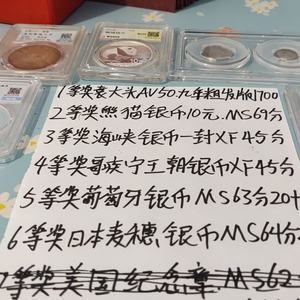 1等奖袁大头AU50.九年粗发版1700
2等奖熊猫银币10元.MS69分
3等奖海峡银币一封XF45分
4等奖哥疾宁王朝银币XF45分
5等奖葡萄牙银币MS63分20+
6等奖日本麦穗银币MS64分
7等奖美国纪念章MS62